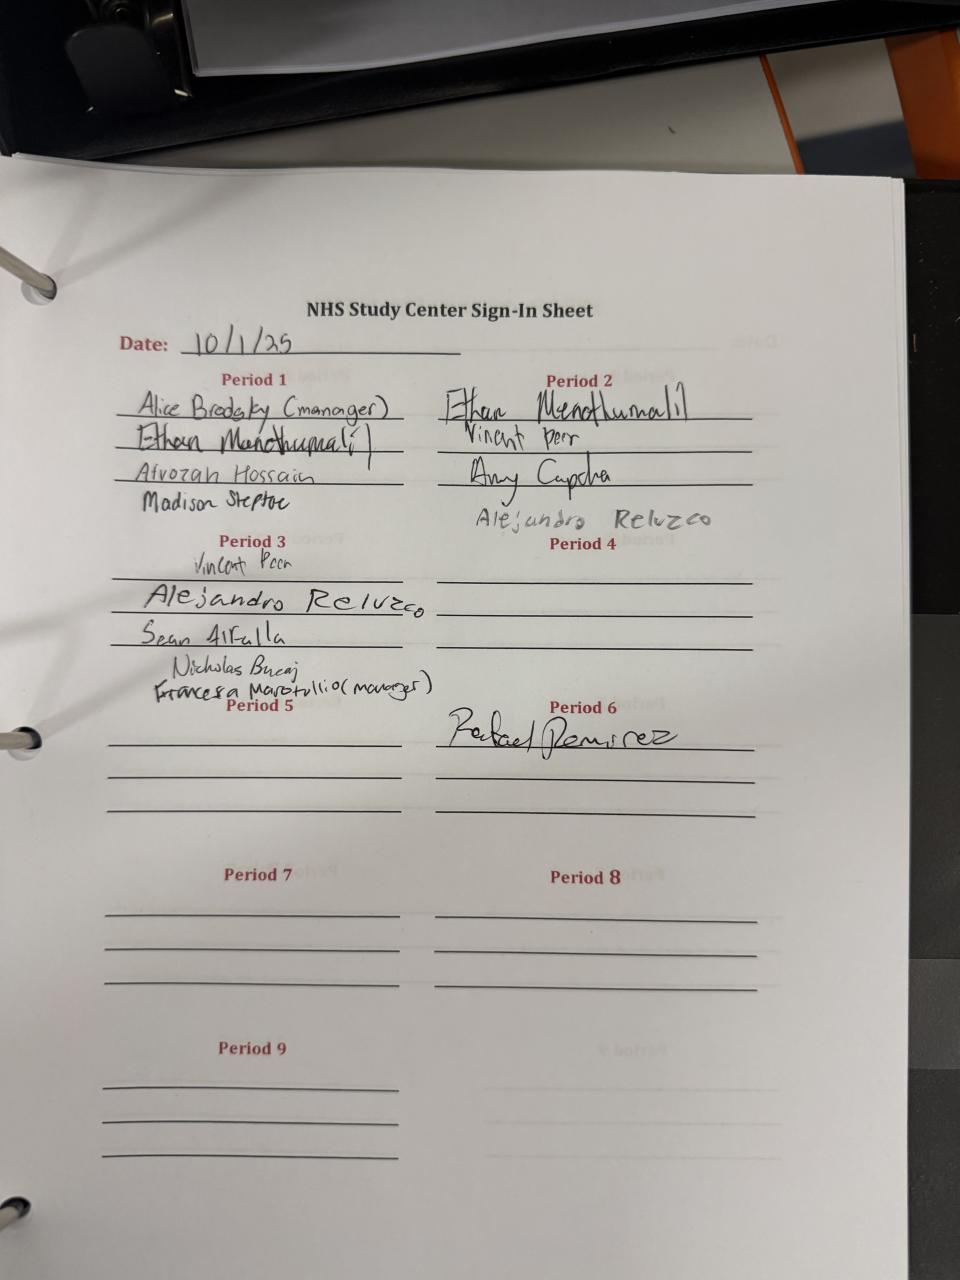 NHS Study Center Sign-In Sheet
Date: 10/1/25
Period 1
Alice Brodsky (manager)
Ethan Manothumalil
Afrozah Hossain
Madison Steptoe
Period 2
Ethan Manothumalil
Vincent Peer
Amy Capcha
Alejandro Reluzco
Period 3
Vincent Peer
Alejandro Reluzco
Sean Alfalla
Nicholas Bucaj
Francesca Marotullio (manager)
Period 4
Period 5
Period 6
Rafael Ramirez
Period 7
Period 8
Period 9